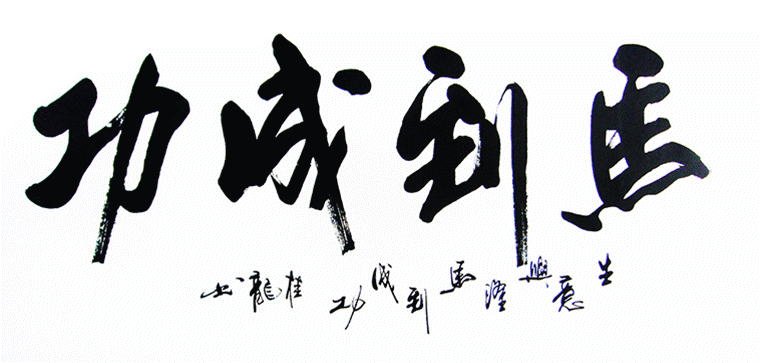 馬到成功
生意興隆馬到成功 桂龍书